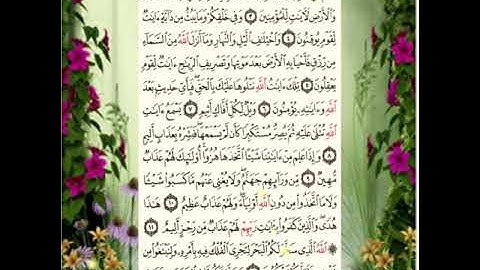 وَٱلْأَرْضِ لَءَايَٰتٍ لِّلْمُؤْمِنِينَ ٣ وَفِى خَلْقِكُمْ وَمَا يَبُثُّ مِن دَآبَّةٍ ءَايَٰتٌ
لِّقَوْمٍ يُوقِنُونَ ٤ وَٱخْتِلَٰفِ ٱلَّيْلِ وَٱلنَّهَارِ وَمَآ أَنزَلَ ٱللَّهُ مِنَ ٱلسَّمَآءِ
مِن رِّزْقٍ فَأَحْيَا بِهِ ٱلْأَرْضَ بَعْدَ مَوْتِهَا وَتَصْرِيفِ ٱلرِّيَٰحِ ءَايَٰتٌ لِّقَوْمٍ
يَعْقِلُونَ ٥ تِلْكَ ءَايَٰتُ ٱللَّهِ نَتْلُوهَا عَلَيْكَ بِٱلْحَقِّ فَبِأَىِّ حَدِيثٍۭ بَعْدَ
ٱللَّهِ وَءَايَٰتِهِۦ يُؤْمِنُونَ ٦ وَيْلٌ لِّكُلِّ أَفَّاكٍ أَثِيمٍ ٧ يَسْمَعُ ءَايَٰتِ
ٱللَّهِ تُتْلَىٰ عَلَيْهِ ثُمَّ يُصِرُّ مُسْتَكْبِرًا كَأَن لَّمْ يَسْمَعْهَا فَبَشِّرْهُ بِعَذَابٍ أَلِيمٍ
٨ وَإِذَا عَلِمَ مِنْ ءَايَٰتِنَا شَيْـًٔا ٱتَّخَذَهَا هُزُوًا أُو۟لَٰٓئِكَ لَهُمْ عَذَابٌ
مُّهِينٌ ٩ مِّن وَرَآئِهِمْ جَهَنَّمُ وَلَا يُغْنِى عَنْهُم مَّا كَسَبُوا۟ شَيْـًٔا
وَلَا مَا ٱتَّخَذُوا۟ مِن دُونِ ٱللَّهِ أَوْلِيَآءَ وَلَهُمْ عَذَابٌ عَظِيمٌ ١٠ هَٰذَا
هُدًى وَٱلَّذِينَ كَفَرُوا۟ بِـَٔايَٰتِ رَبِّهِمْ لَهُمْ عَذَابٌ مِّن رِّجْزٍ أَلِيمٌ ١١
۞ ٱللَّهُ ٱلَّذِى سَخَّرَ لَكُمُ ٱلْبَحْرَ لِتَجْرِىَ ٱلْفُلْكُ فِيهِ بِأَمْرِهِۦ وَلِتَبْتَغُوا۟ مِن